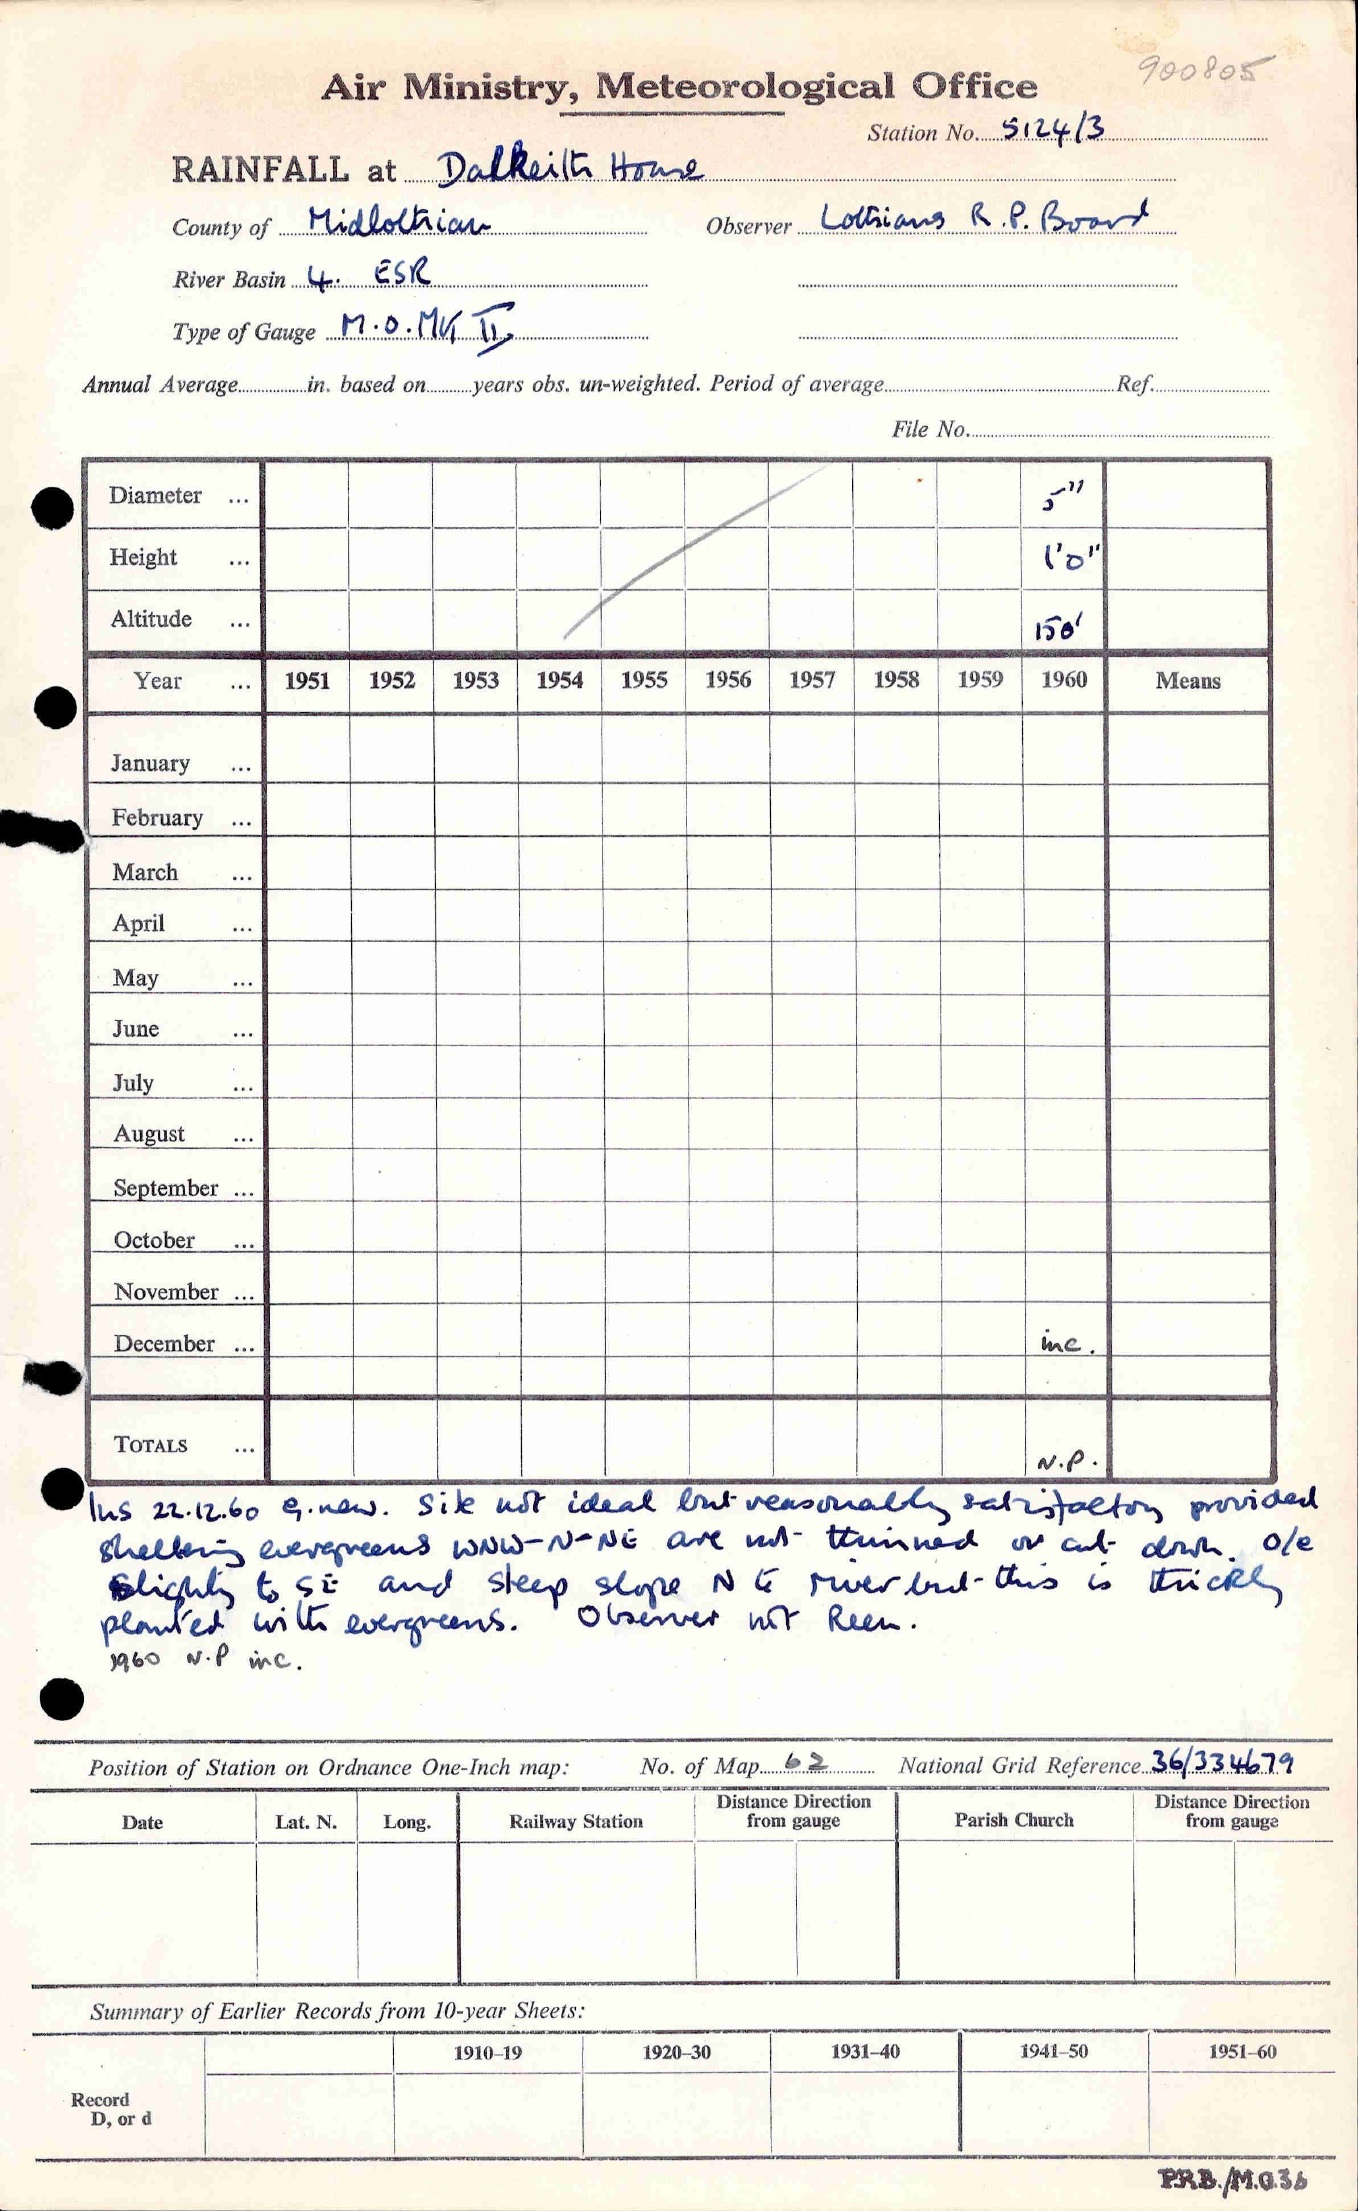 900805
Air Ministry, Meteorological Office
Station No. 5124/3
RAINFALL at Dalkeith House
County of Midlothian Observer Lothians R.P. Board
River Basin 4. ESR
Type of Gauge M.O. Mk II
Annual Average in. based on years obs. un-weighted. Period of average Ref.
File No.
Diameter ... 5"
Height ... 1'0"
Altitude ... 150'
Year ... 1951 1952 1953 1954 1955 1956 1957 1958 1959 1960 Means
January ...
February ...
March ...
April ...
May ...
June ...
July ...
August ...
September ...
October ...
November ...
December ... inc.
TOTALS ... N.P.
Ins 22.12.60 G. new. Site not ideal but reasonably satisfactory provided
sheltering evergreens WNW-N-NE are not thinned or cut down. o/e
slightly to SE and steep slope N to river but this is thickly
planted with evergreens. Observer not keen.
1960 N.P inc.
Position of Station on Ordnance One-Inch map: No. of Map 62 National Grid Reference 36/334679
Date Lat. N. Long. Railway Station Distance Direction from gauge Parish Church Distance Direction from gauge
Summary of Earlier Records from 10-year Sheets:
1910–19 1920–30 1931–40 1941–50 1951–60
Record
D, or d
P.R.B./M.O.36